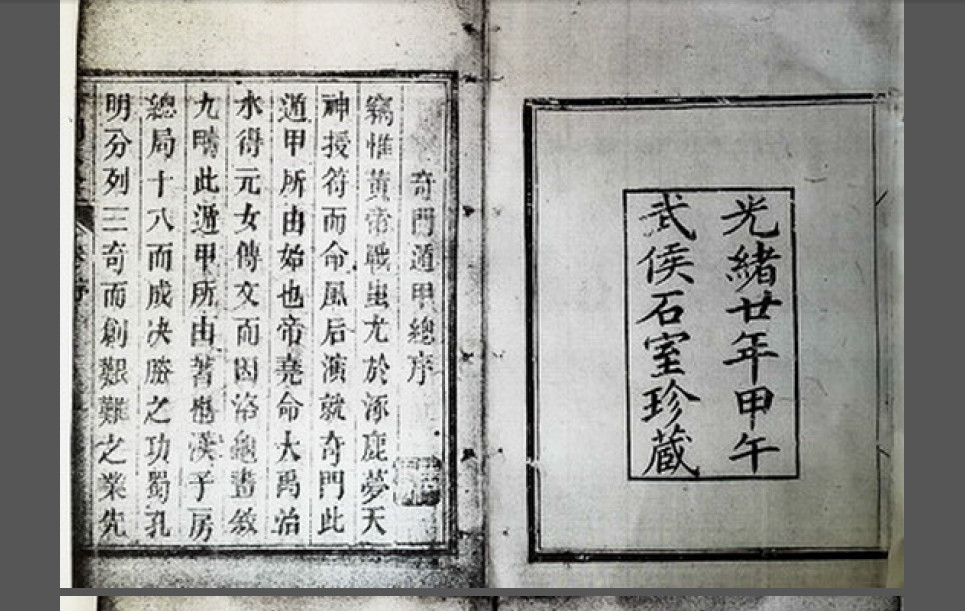 光緒廿年甲午
武侯石室珍藏
奇門遁甲總序
竊惟黃帝戰蚩尤於涿鹿夢天
神授符而命風后演就奇門此
遁甲所由始也帝堯命大禹治
水得元女傳文而因洛龜畫敘
九疇此遁甲所由著漢子房
總局十八而成决勝之功蜀孔
明分列三奇而創艱難之業先